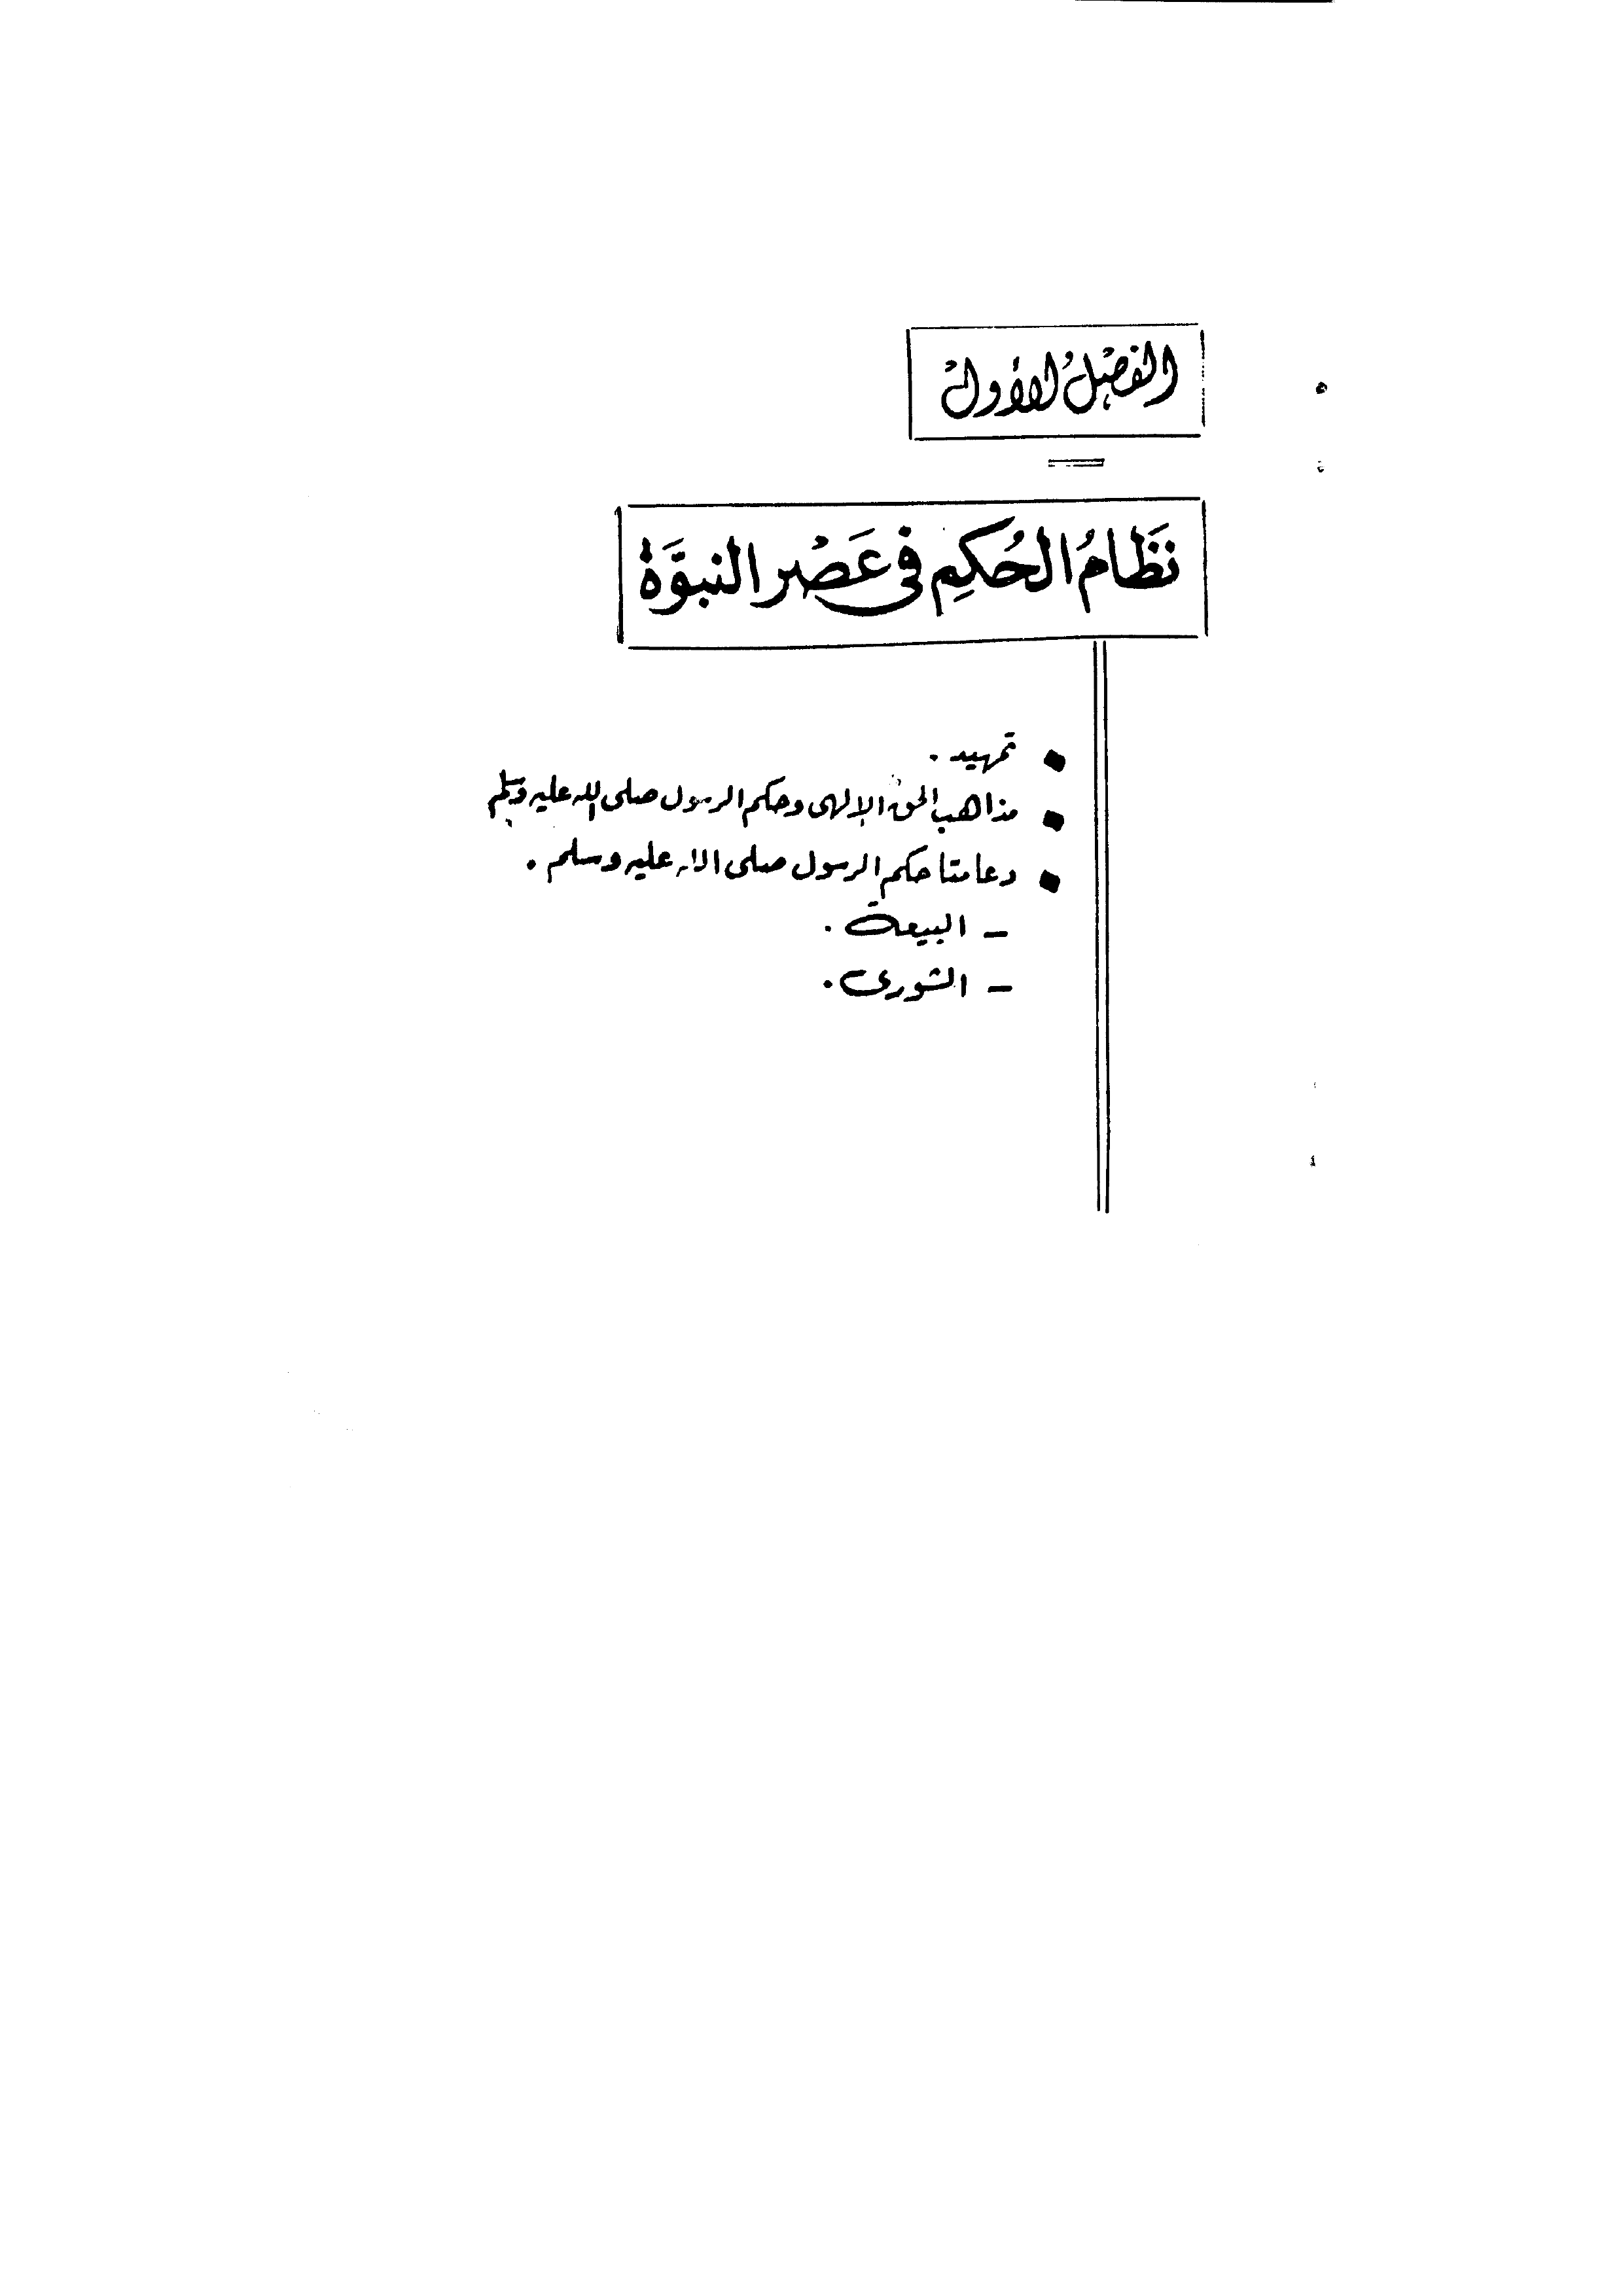 الفصل الأول
نظام الحكم في عصر النبوة
تمهيد .
مذاهب الحق الإلهى وحكم الرسول صلى الله عليه وسلم
دعامتا حكم الرسول صلى الله عليه وسلم .
– البيعة .
– الشورى .